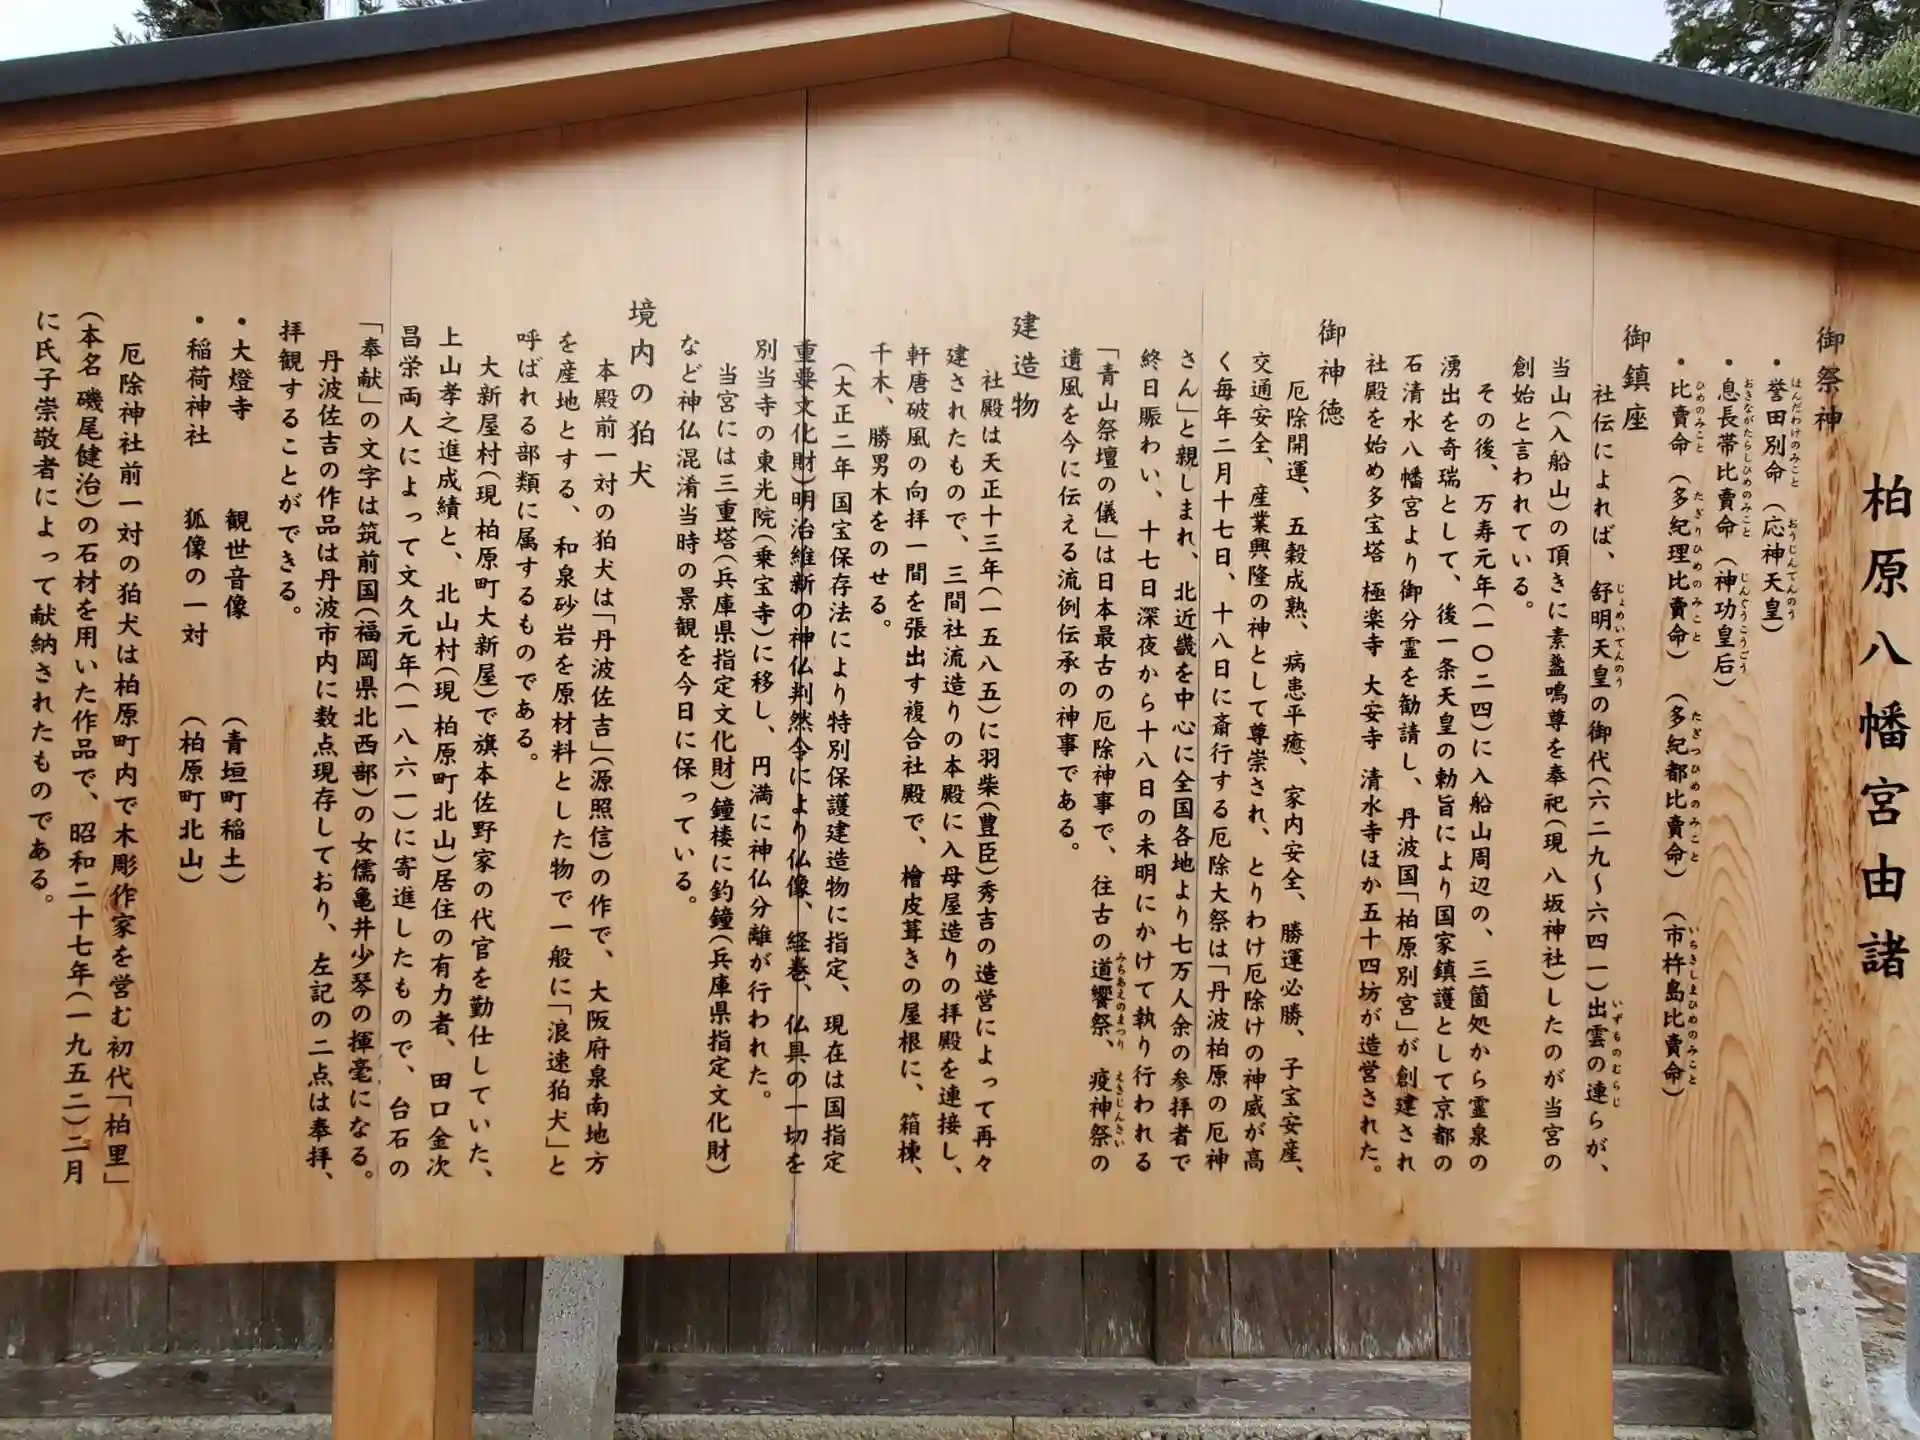 柏原八幡宮由諸
御祭神
・誉田別命（応神天皇）
・息長帯比賣命（神功皇后）
・比賣命（多紀理比賣命）（多紀都比賣命）（市杵島比賣命）
御鎮座
社伝によれば、舒明天皇の御代（六二九〜六四一）出雲の連らが、
当山（入船山）の頂きに素盞鳴尊を奉祀（現 八坂神社）したのが当宮の
創始と言われている。
その後、万寿元年（一〇二四）に入船山周辺の、三箇処から霊泉の
湧出を奇瑞として、後一条天皇の勅旨により国家鎮護として京都の
石清水八幡宮より御分霊を勧請し、丹波国「柏原別宮」が創建され
社殿を始め多宝塔 極楽寺 大安寺 清水寺ほか五十四坊が造営された。
御神徳
厄除開運、五穀成熟、病患平癒、家内安全、勝運必勝、子宝安産、
交通安全、産業興隆の神として尊崇され、とりわけ厄除けの神威が高
く毎年二月十七日、十八日に斎行する厄除大祭は「丹波柏原の厄神
さん」と親しまれ、北近畿を中心に全国各地より七万人余の参拝者で
終日賑わい、十七日深夜から十八日の未明にかけて執り行われる
「青山祭壇の儀」は日本最古の厄除神事で、往古の道饗祭、疫神祭の
遺風を今に伝える流例伝承の神事である。
建造物
社殿は天正十三年（一五八五）に羽柴（豊臣）秀吉の造営によって再々
建されたもので、三間社流造りの本殿に入母屋造りの拝殿を連接し、
軒唐破風の向拝一間を張出す複合社殿で、檜皮葺きの屋根に、箱棟、
千木、勝男木をのせる。
（大正二年 国宝保存法により特別保護建造物に指定、現在は国指定
重要文化財）明治維新の神仏判然令により仏像、経巻、仏具の一切を
別当寺の東光院（乗宝寺）に移し、円満に神仏分離が行われた。
当宮には三重塔（兵庫県指定文化財）鐘楼に釣鐘（兵庫県指定文化財）
など神仏混淆当時の景観を今日に保っている。
境内の狛犬
本殿前一対の狛犬は「丹波佐吉」（源照信）の作で、大阪府泉南地方
を産地とする、和泉砂岩を原材料とした物で一般に「浪速狛犬」と
呼ばれる部類に属するものである。
大新屋村（現 柏原町大新屋）で旗本佐野家の代官を勤仕していた、
上山孝之進成績と、北山村（現 柏原町北山）居住の有力者、田口金次
昌栄両人によって文久元年（一八六一）に寄進したもので、台石の
「奉献」の文字は筑前国（福岡県北西部）の女儒亀井少琴の揮毫になる。
丹波佐吉の作品は丹波市内に数点現存しており、左記の二点は奉拝、
拝観することができる。
・大燈寺 観世音像 （青垣町稲土）
・稲荷神社 狐像の一対 （柏原町北山）
厄除神社前一対の狛犬は柏原町内で木彫作家を営む初代「柏里」
（本名 磯尾健治）の石材を用いた作品で、昭和二十七年（一九五二）二月
に氏子崇敬者によって献納されたものである。
ほんだわけのみこと
おうじんてんのう
おきながたらしひめのみこと
じんぐうこうごう
ひめのみこと
たぎりひめのみこと
たぎつひめのみこと
いちきしまひめのみこと
じょめいてんのう
いずものむらじ
みちあえのまつり
えきじんさい